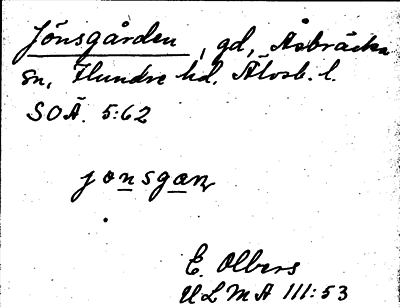 Jönsgården, gd, Åsbräcka
sn, Flundre hd, Älvsb. l.
SOÄ. 5:62
jonsgan
E. Olbers
ULMA 111:53